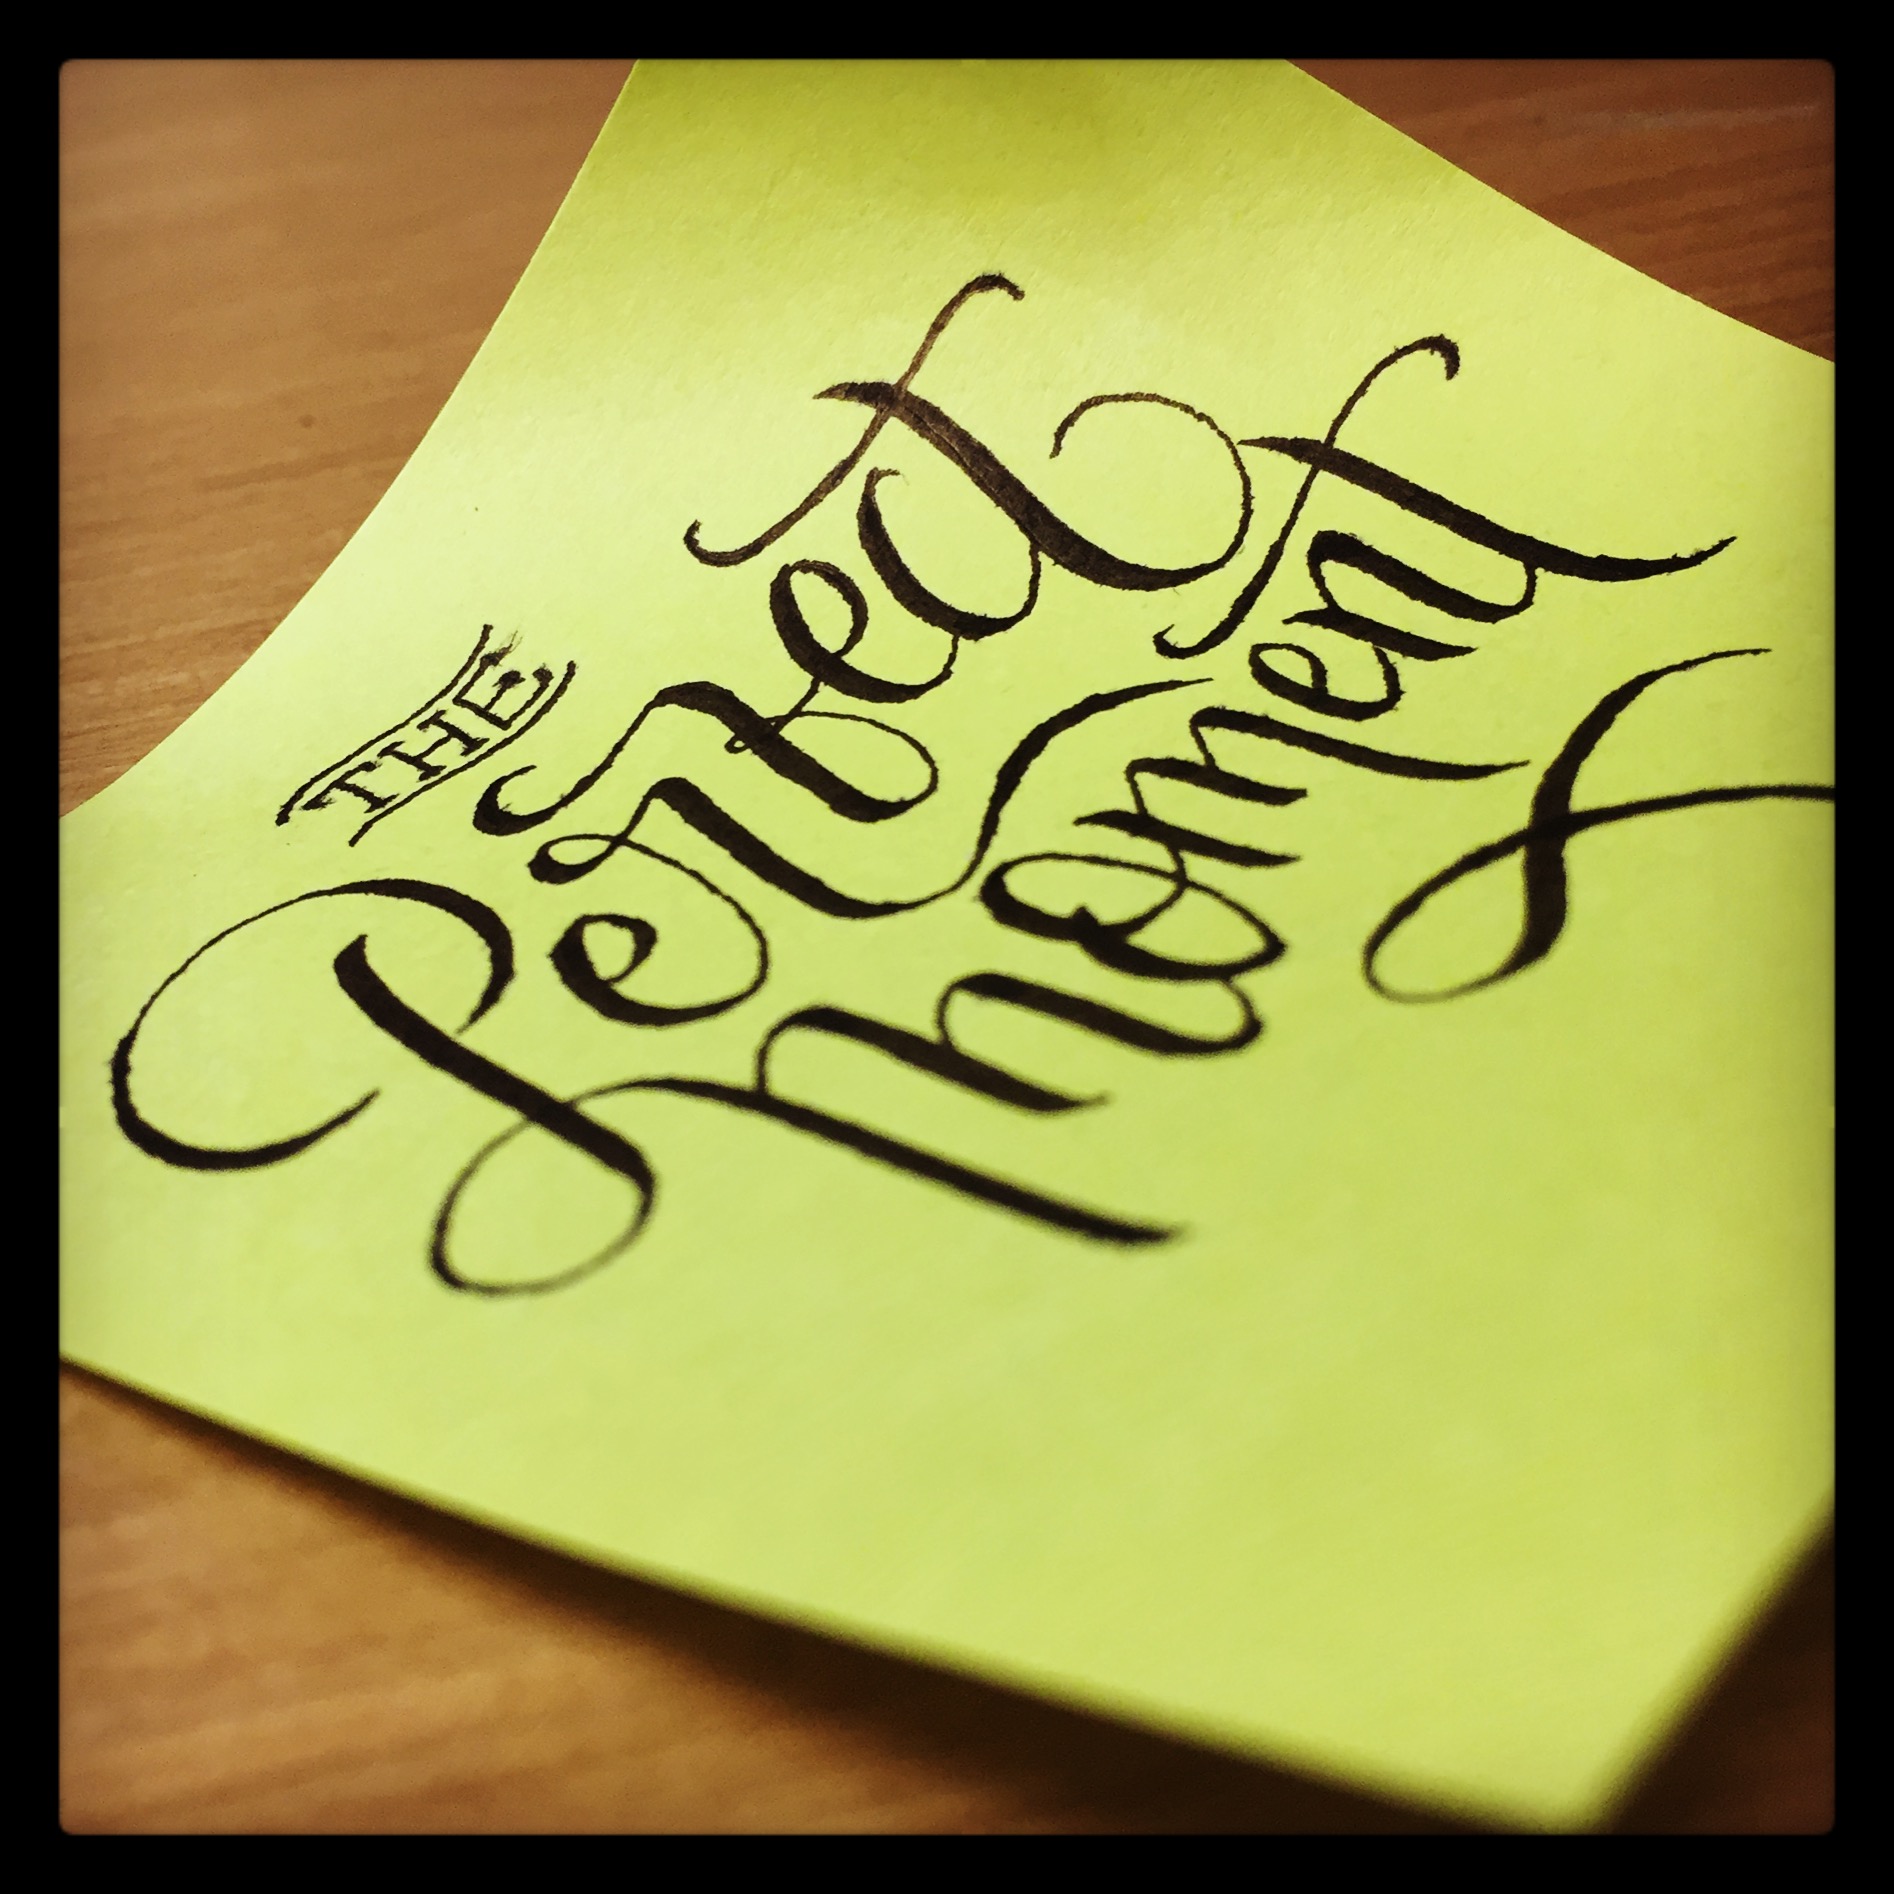 THE
Perfect
moment